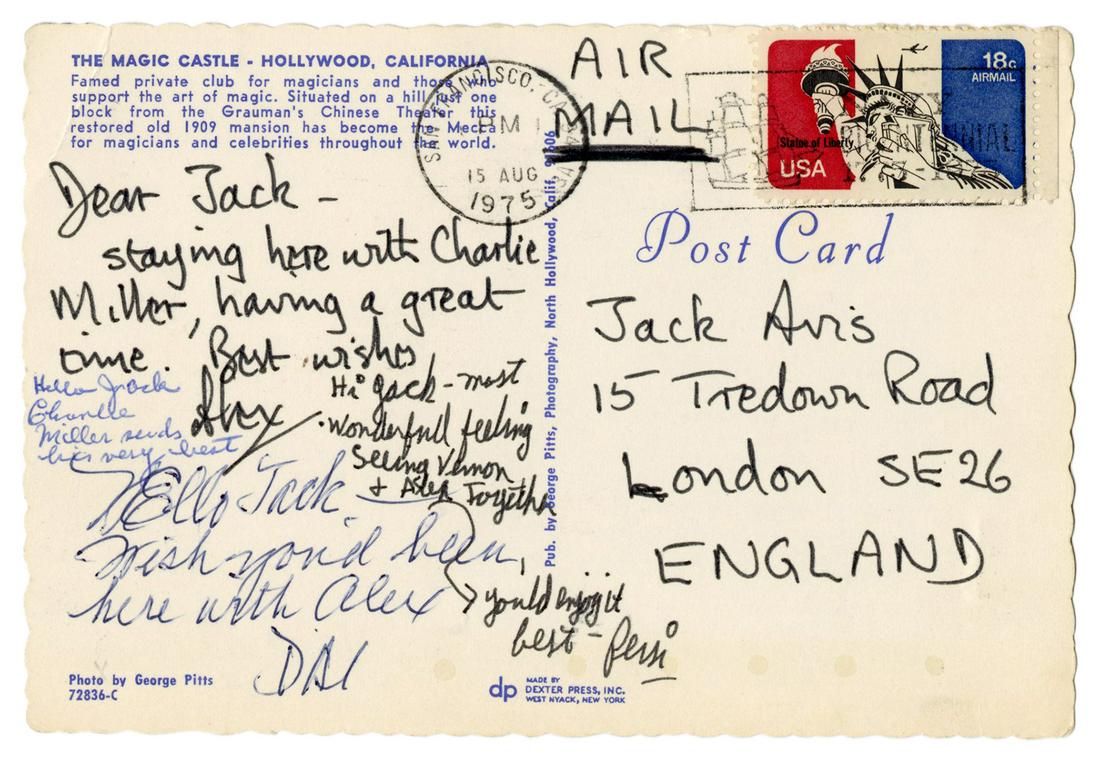 THE MAGIC CASTLE - HOLLYWOOD, CALIFORNIA
Famed private club for magicians and those who
support the art of magic. Situated on a hill just one
block from the Grauman's Chinese Theater this
restored old 1909 mansion has become the Mecca
for magicians and celebrities throughout the world.
AIR
MAIL
SAN FRANCISCO, CA
PM
15 AUG
1975
18c
AIRMAIL
Statue of Liberty
USA
Dear Jack -
staying here with Charlie
Miller, having a great
time. Best wishes
Alex
Hello Jack
Charlie
Miller sends
his very best
Hi Jack - most
wonderfull feeling
Seeing Vernon
+ Alex Together
you'd enjoy it
best - Persi
Hello Jack
Wish you'd been,
here with Alex
DAI
Photo by George Pitts
72836-C
Pub. by George Pitts, Photography, North Hollywood, Calif. 91606
dp
MADE BY
DEXTER PRESS, INC.
WEST NYACK, NEW YORK
Post Card
Jack Avis
15 Tredown Road
London SE26
ENGLAND